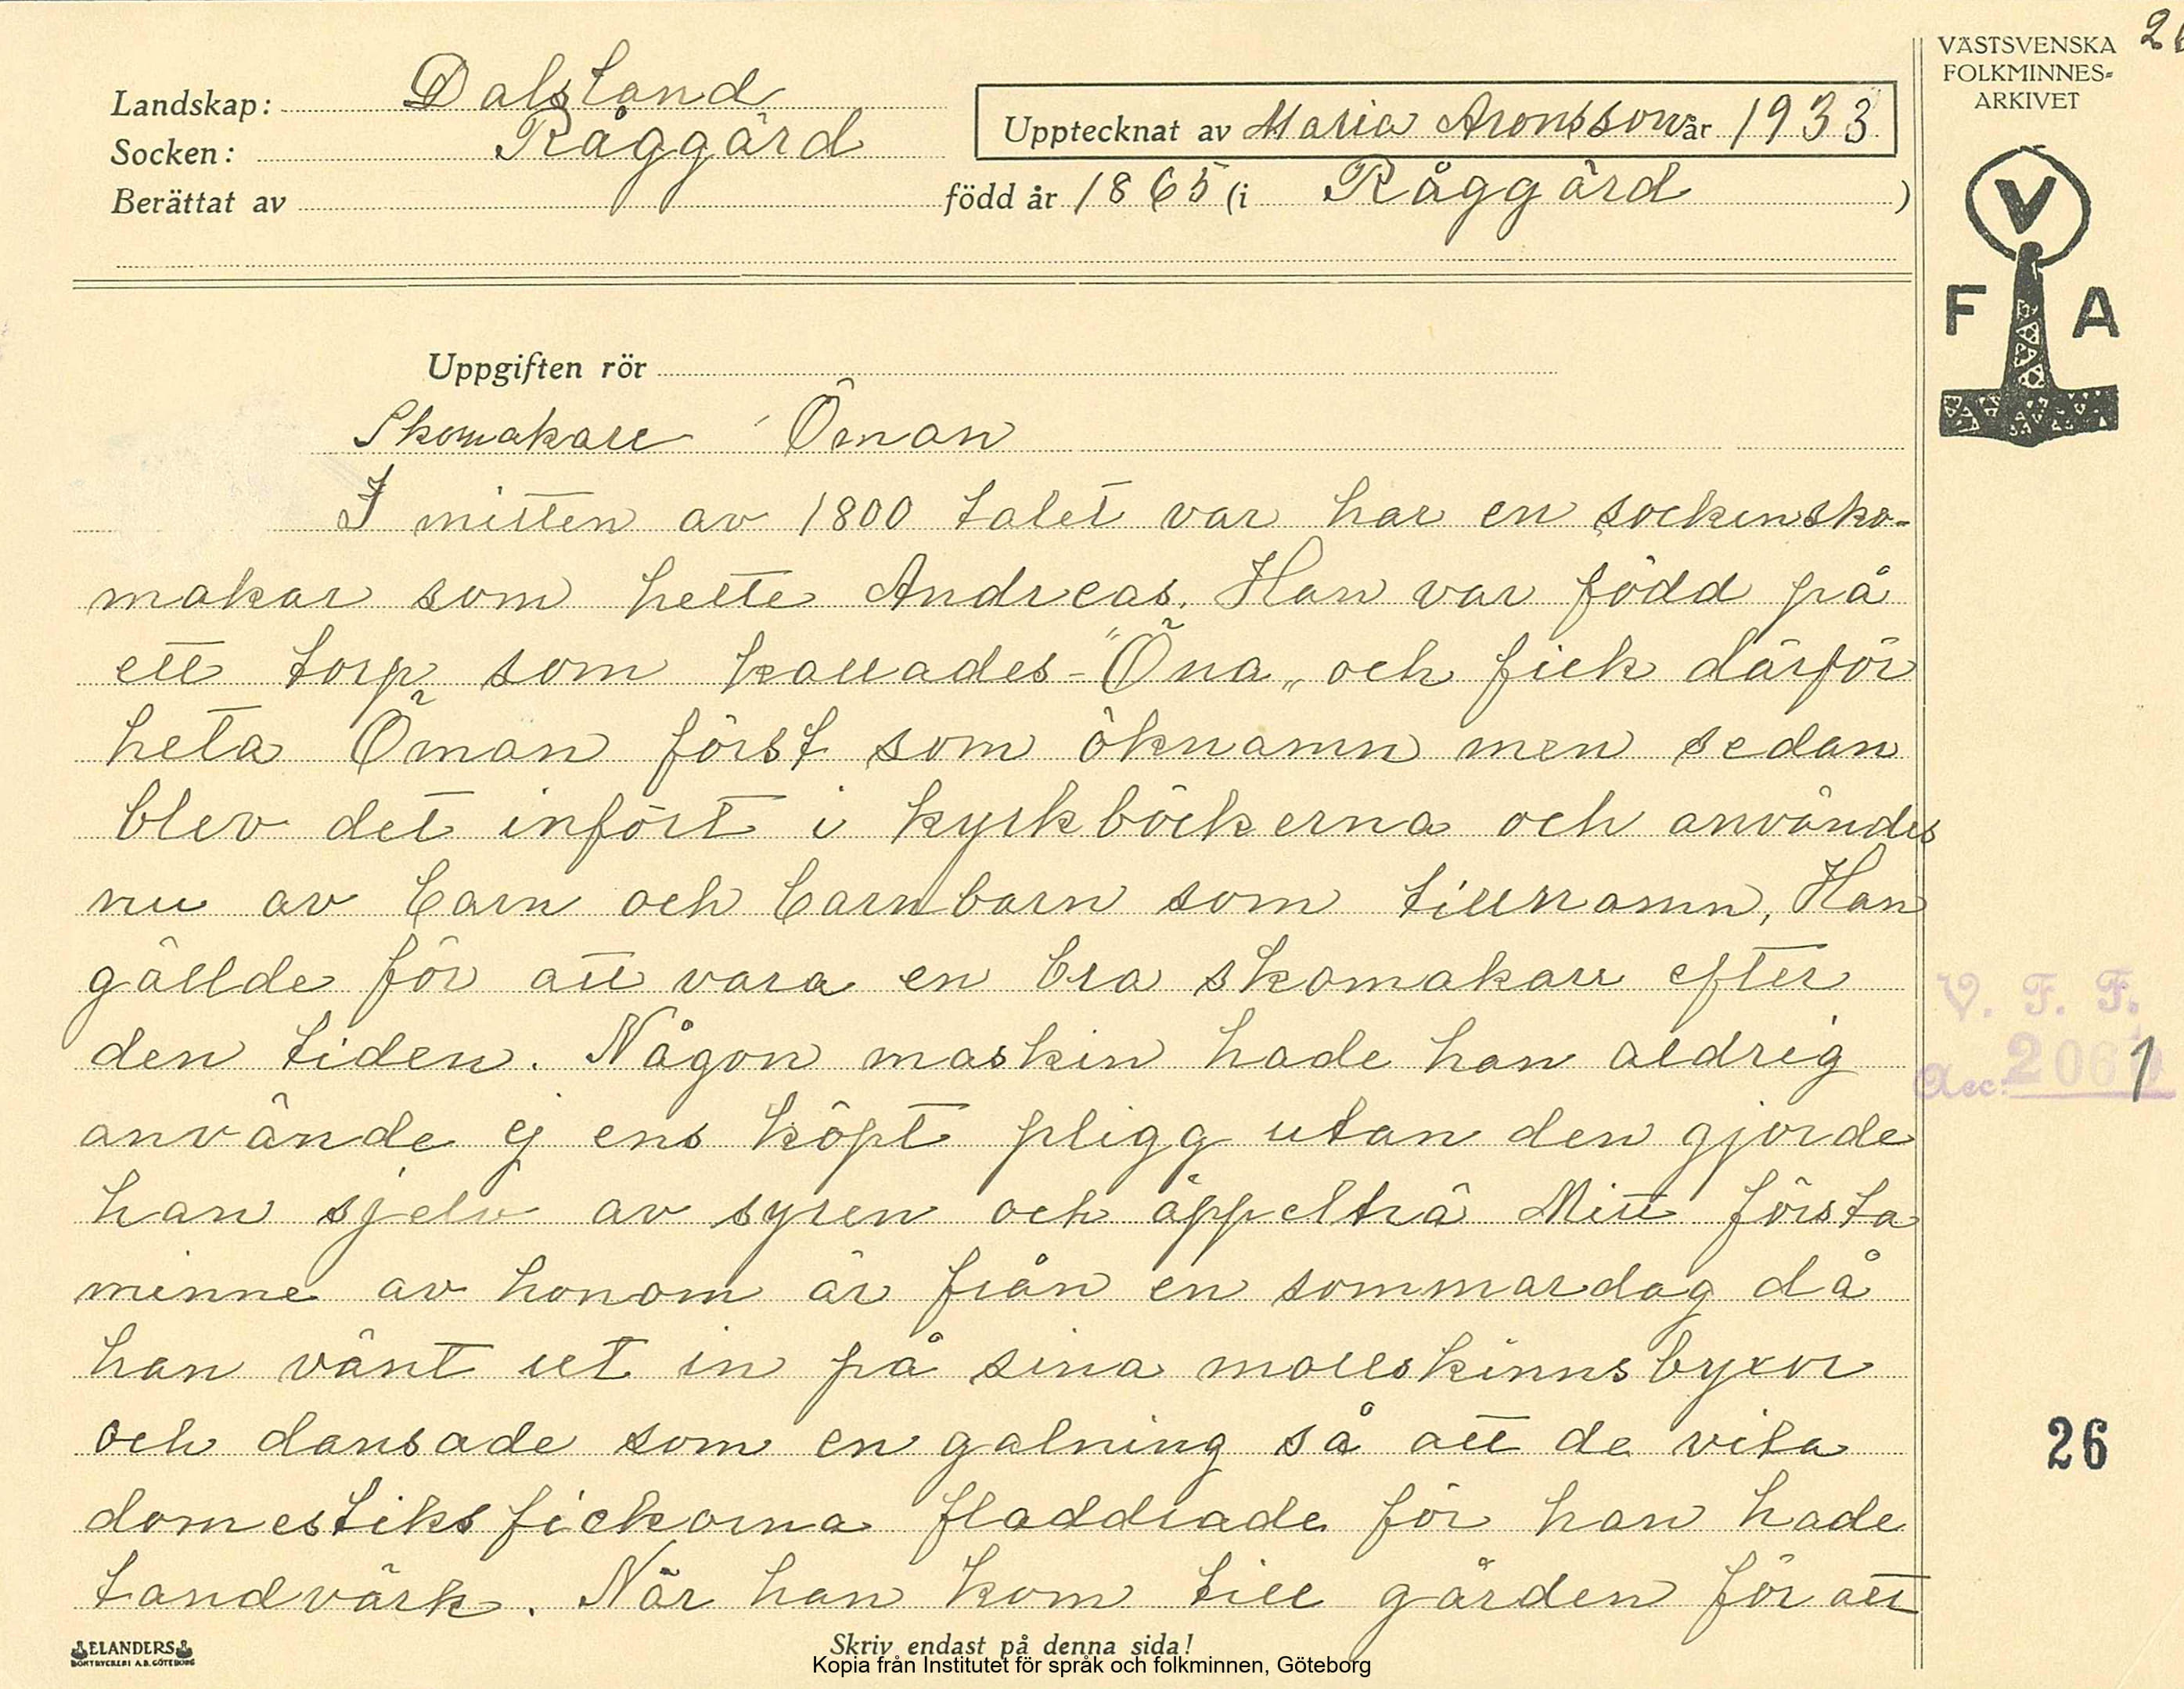 VÄSTSVENSKA
FOLKMINNES-
ARKIVET
Landskap: Dalsland
Socken: Råggärd
Upptecknat av Maria Aronsson år 1933
Berättat av född år 1865 (i Råggärd )
V
F A
Uppgiften rör
Skomakare Öman
I mitten av 1800 talet var har en sockensko-
makar som hette Andreas. Han var född på
ett torp som kallades - "Öna" och fick därför
heta Öman först som öknamn men sedan
blev det infört i kyrkböckerna och användes
nu av barn och barnbarn som tillnamn, Han
gällde för att vara en bra skomakare efter
den tiden. Någon maskin hade han aldrig
använde ej ens köpt pligg utan den gjorde
han sjelv av syren och äppelträ Mitt första
minne av honom är från en sommardag då
han vänt ut in på sina mollskinnsbyxor
och dansade som en galning så att de vita
domestiksfickorna fladdrade för han hade
tandvärk. När han kom till gården för att
V. F. F.
Acc.
26
ELANDERS
BOKTRYCKERI A.B. GÖTEBORG
Skriv endast på denna sida!
Kopia från Institutet för språk och folkminnen, Göteborg